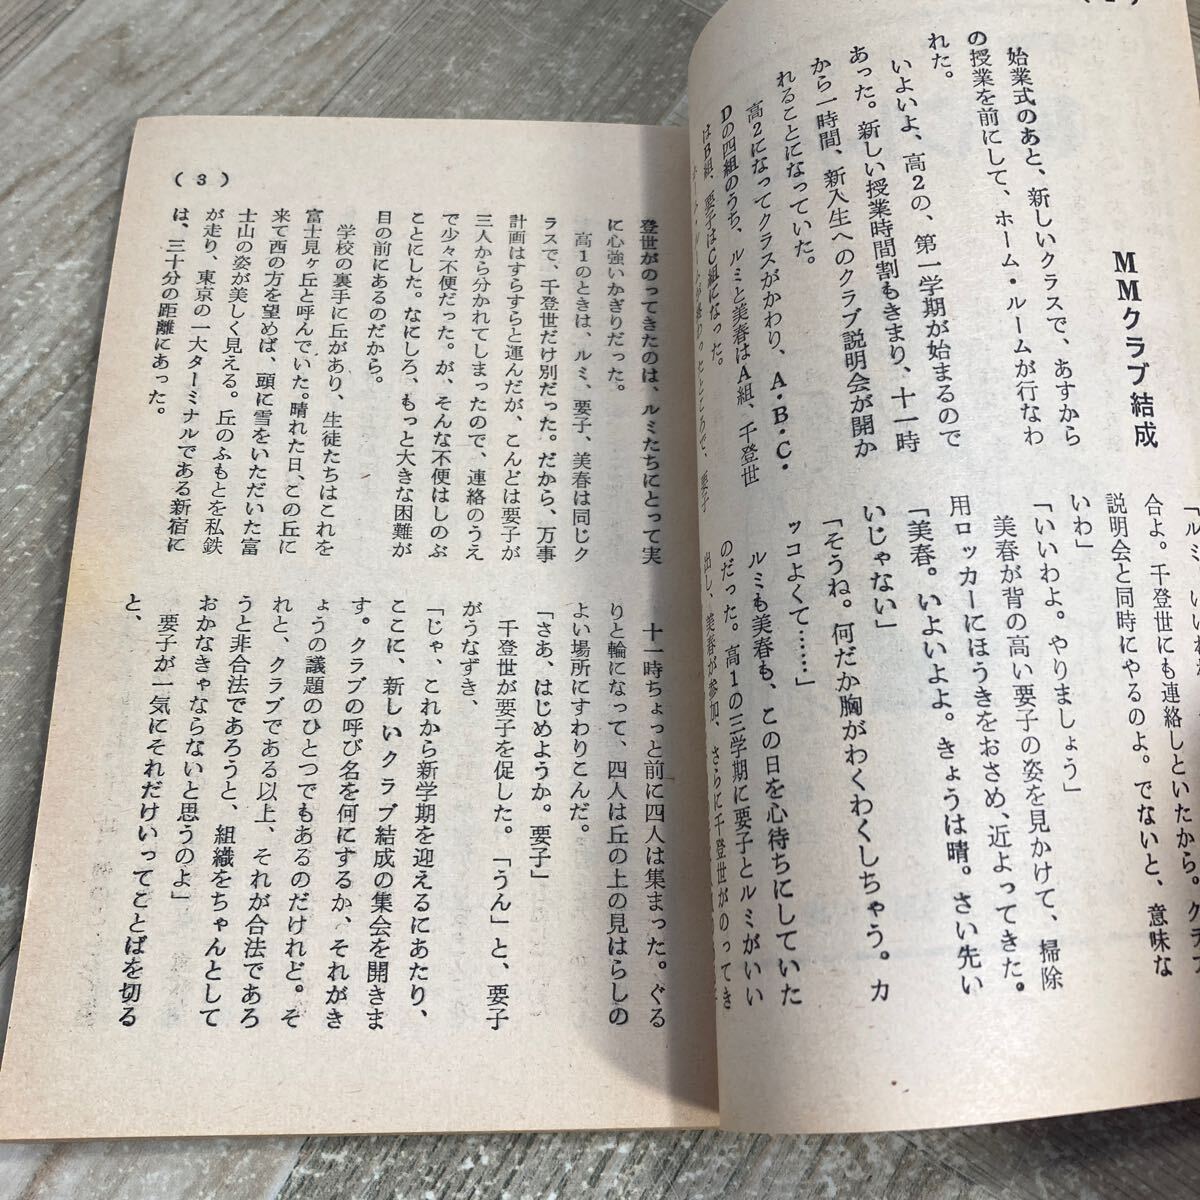 MMクラブ結成
始業式のあと、新しいクラスで、あすから
の授業を前にして、ホーム・ルームが行なわ
れた。
いよいよ、高2の、第一学期が始まるので
あった。新しい授業時間割もきまり、十一時
から一時間、新入生へのクラブ説明会が開か
れることになっていた。
高2になってクラスがかわり、A・B・C・
Dの四組のうち、ルミと美春はA組、千登世
はB組、要子はC組になった。
合よ。千登世にも連絡しといたから。クラブ
説明会と同時にやるのよ。でないと、意味な
いわ」
「いいわよ。やりましょう」
美春が背の高い要子の姿を見かけて、掃除
用ロッカーにほうきをおさめ、近よってきた。
「美春。いよいよよ。きょうは晴。さい先い
いじゃない」
「そうね。何だか胸がわくわくしちゃう。カ
ッコよくて……」
ルミも美春も、この日を心待ちにしていた
のだった。高1の三学期に要子とルミがいい
出し、美春が参加、さらに千登世がのってき
(3)
登世がのってきたのは、ルミたちにとって実
に心強いかぎりだった。
高1のときは、ルミ、要子、美春は同じク
ラスで、千登世だけ別だった。だから、万事
計画はすらすらと運んだが、こんどは要子が
三人から分かれてしまったので、連絡のうえ
で少々不便だった。が、そんな不便はしのぶ
ことにした。なにしろ、もっと大きな困難が
目の前にあるのだから。
学校の裏手に丘があり、生徒たちはこれを
富士見ヶ丘と呼んでいた。晴れた日、この丘に
来て西の方を望めば、頭に雪をいただいた富
士山の姿が美しく見える。丘のふもとを私鉄
が走り、東京の一大ターミナルである新宿に
は、三十分の距離にあった。
十一時ちょっと前に四人は集まった。ぐる
りと輪になって、四人は丘の上の見はらしの
よい場所にすわりこんだ。
「さあ、はじめようか。要子」
千登世が要子を促した。「うん」と、要子
がうなずき、
「じゃ、これから新学期を迎えるにあたり、
ここに、新しいクラブ結成の集会を開きま
す。クラブの呼び名を何にするか、それがき
ょうの議題のひとつでもあるのだけれど。そ
れと、クラブである以上、それが合法であろ
うと非合法であろうと、組織をちゃんとして
おかなきゃならないと思うのよ」
要子が一気にそれだけいってことばを切る
と、